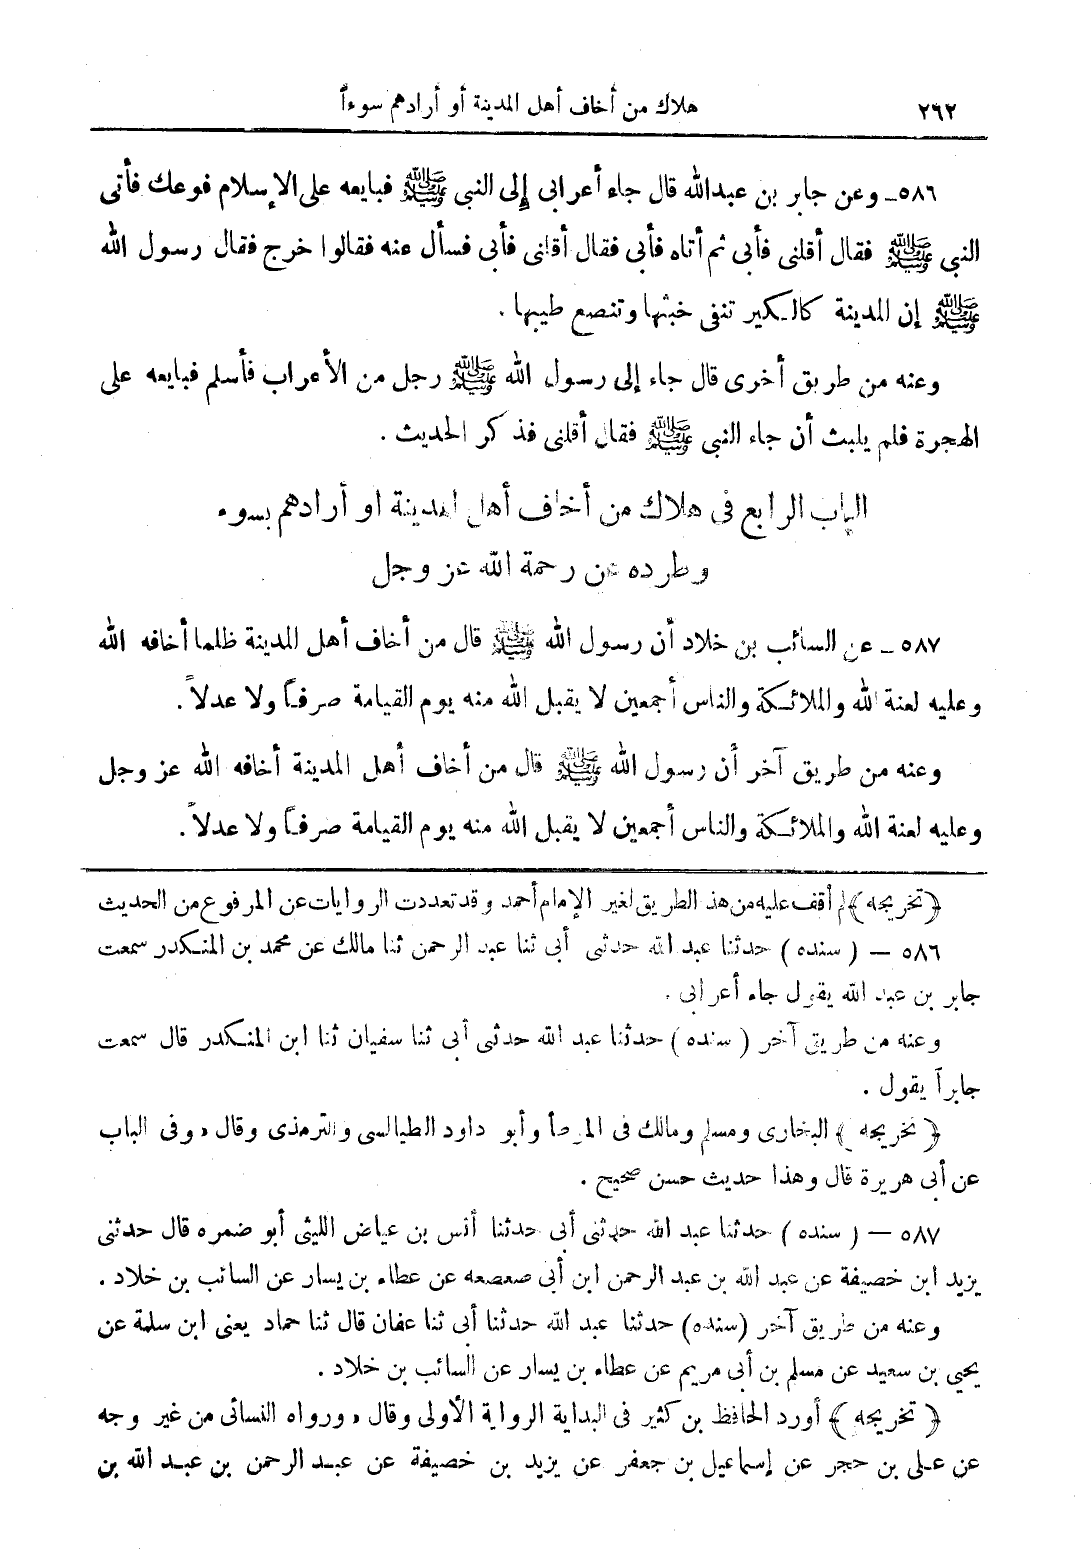 ٢٦٢ هلاك من أخاف أهل المدينة أو أرادهم سوءاً
٥٨٦ـ وعن جابر بن عبدالله قال جاء أعرابى إلى النبى ﷺ فبايعه على الإسلام فوعك فأتى
النبى ﷺ فقال أقلنى فأبى ثم أتاه فأبى فقال أقلنى فأبى فسأل عنه فقالوا خرج فقال رسول الله
ﷺ إن المدينة كالكير تنفى خبثها وتنصع طيبها .
وعنه من طريق أخرى قال جاء إلى رسول الله ﷺ رجل من الأعراب فأسلم فبايعه على
الهجرة فلم يلبث أن جاء النبى ﷺ فقال أقلنى فذكر الحديث .
الباب الرابع فى هلاك من أخاف أهل المدينة او أرادهم بسوء
وطرده عن رحمة الله عز وجل
٥٨٧ ـ عن السائب بن خلاد أن رسول الله ﷺ قال من أخاف أهل المدينة ظلما أخافه الله
وعليه لعنة الله والملائكة والناس أجمعين لا يقبل الله منه يوم القيامة صرفاً ولا عدلاً .
وعنه من طريق آخر أن رسول الله ﷺ قال من أخاف أهل المدينة أخافه الله عز وجل
وعليه لعنة الله والملائكة والناس أجمعين لا يقبل الله منه يوم القيامة صرفاً ولا عدلاً .
﴿تخريجه﴾ لم أقف عليه من هذ الطريق لغير الإمام أحمد وقد تعددت الروايات عن المرفوع من الحديث
٥٨٦ — ( سنده ) حدثنا عبد الله حدثنى أبى ثنا عبد الرحمن ثنا مالك عن محمد بن المنكدر سمعت
جابر بن عبد الله يقول جاء أعرابى .
وعنه من طريق آخر ( سنده ) حدثنا عبد الله حدثنى أبى ثنا سفيان ثنا ابن المنكدر قال سمعت
جابراً يقول .
﴿ تخريجه ﴾ البخارى ومسلم ومالك فى الموطأ وأبو داود الطيالسى والترمذى وقال « وفى الباب
عن أبى هريرة قال وهذا حديث حسن صحيح .
٥٨٧ — ( سنده ) حدثنا عبد الله حدثنى أبى حدثنا أنس بن عياض الليثى أبو ضمره قال حدثنى
يزيد ابن خصيفة عن عبد الله بن عبد الرحمن ابن أبى صعصعه عن عطاء بن يسار عن السائب بن خلاد .
وعنه من طريق آخر (سنده) حدثنا عبد الله حدثنا أبى ثنا عفان قال ثنا حماد يعنى ابن سلمة عن
يحيي بن سعيد عن مسلم بن أبى مريم عن عطاء بن يسار عن السائب بن خلاد .
﴿ تخريجه ﴾ أورد الحافظ بن كثير فى البداية الرواية الأولى وقال « ورواه النسائى من غير وجه
عن على بن حجر عن إسماعيل بن جعفر عن يزيد بن خصيفة عن عبد الرحمن بن عبد الله بن